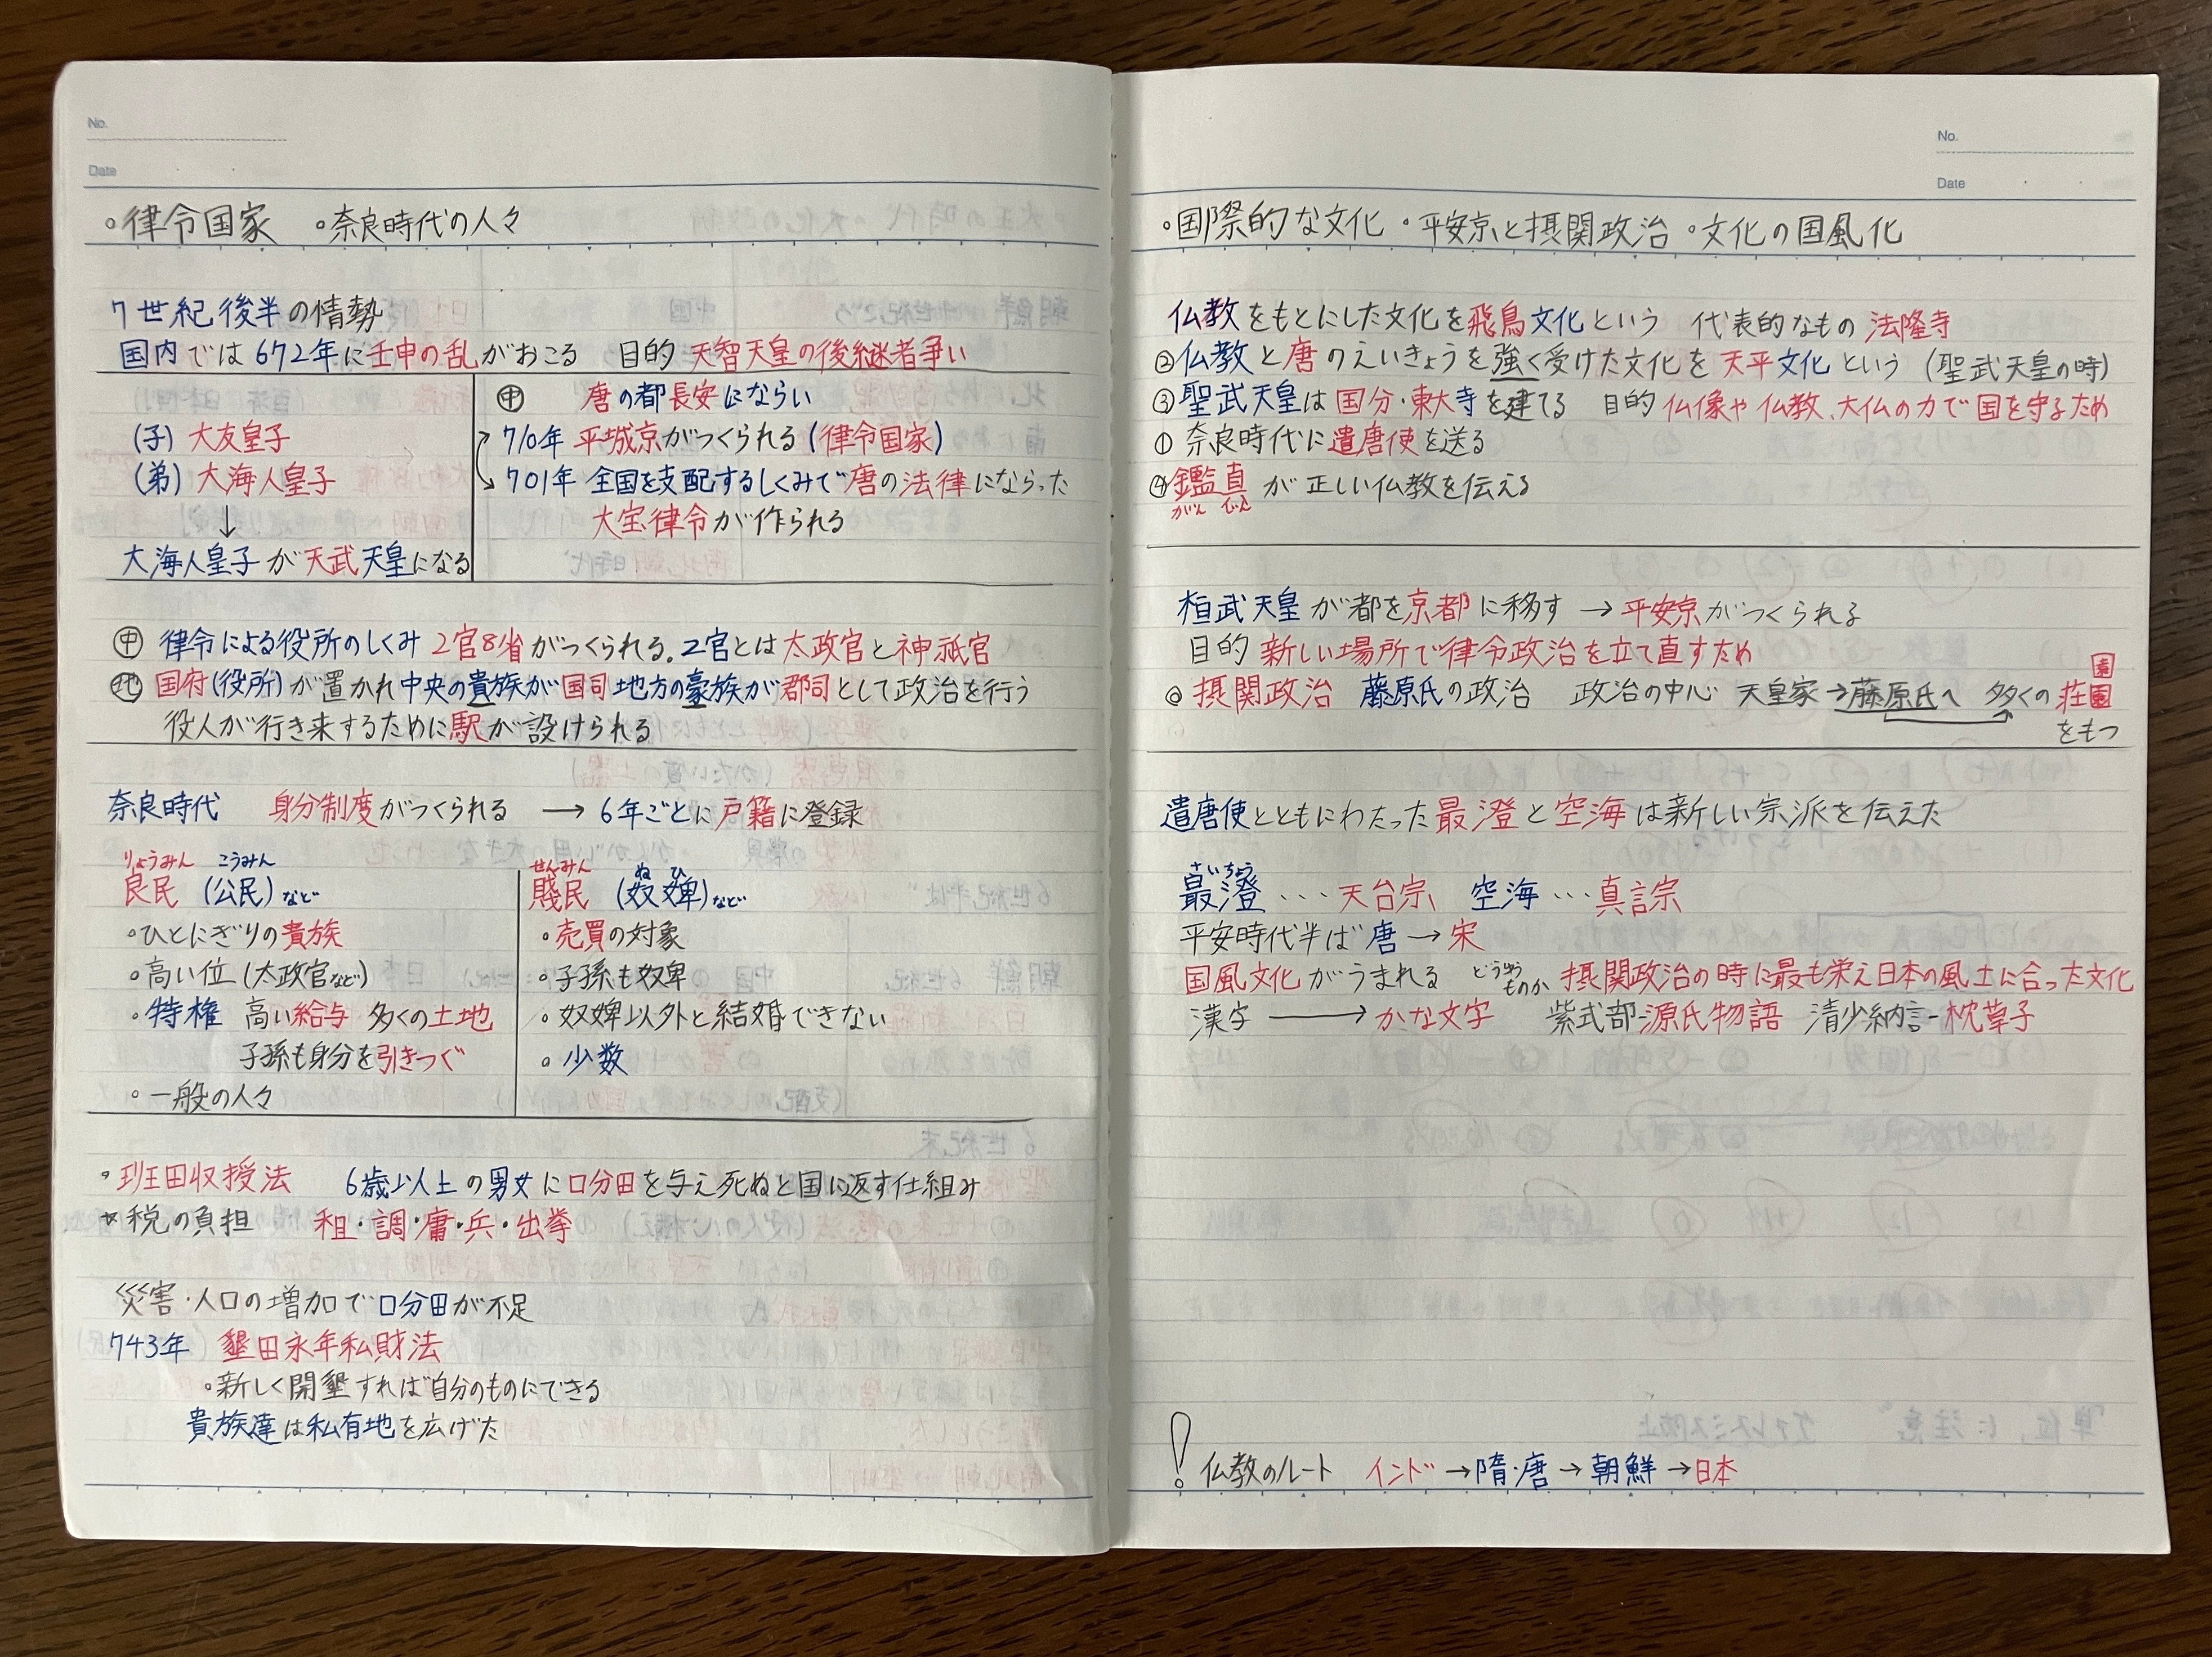 No.
Date
◦律令国家 ◦奈良時代の人々
7世紀後半の情勢
国内では672年に壬申の乱がおこる 目的 天智天皇の後継者争い
(子) 大友皇子
(弟) 大海人皇子
↓
大海人皇子が天武天皇になる
㊥ 唐の都長安にならい
710年 平城京がつくられる(律令国家)
701年 全国を支配するしくみで唐の法律にならった
大宝律令が作られる
㊥ 律令による役所のしくみ 2官8省がつくられる。2官とは太政官と神祇官
地 国府(役所)が置かれ中央の貴族が国司地方の豪族が郡司として政治を行う
役人が行き来するために駅が設けられる
奈良時代 身分制度がつくられる → 6年ごとに戸籍に登録
りょうみん こうみん
良民 (公民)など
◦ひとにぎりの貴族
◦高い位(太政官など)
・特権 高い給与 多くの土地
子孫も身分を引きつぐ
◦一般の人々
せんみん ぬ ひ
賤民 (奴婢)など
・売買の対象
・子孫も奴婢
◦奴婢以外と結婚できない
◦少数
◦班田収授法 6歳以上の男女に口分田を与え死ぬと国に返す仕組み
☆税の負担 租・調・庸・兵・出挙
災害・人口の増加で口分田が不足
743年 墾田永年私財法
◦新しく開墾すれば自分のものにできる
貴族達は私有地を広げた
No.
Date
◦国際的な文化 ◦平安京と摂関政治 ◦文化の国風化
仏教をもとにした文化を飛鳥文化という 代表的なもの 法隆寺
②仏教と唐のえいきょうを強く受けた文化を天平文化という (聖武天皇の時)
③聖武天皇は国分・東大寺を建てる 目的 仏像や仏教、大仏の力で国を守るため
① 奈良時代に遣唐使を送る
④鑑真が正しい仏教を伝える
がん じん
桓武天皇が都を京都に移す → 平安京がつくられる
目的 新しい場所で律令政治を立て直すため
◎ 摂関政治 藤原氏の政治 政治の中心 天皇家→藤原氏へ 多くの荘園
園
をもつ
遣唐使とともにわたった最澄と空海は新しい宗派を伝えた
さいちょう
最澄 … 天台宗 空海 … 真言宗
平安時代半ば 唐→宋
国風文化がうまれる どういうものか 摂関政治の時に最も栄え日本の風土に合った文化
漢字 → かな文字 紫式部-源氏物語 清少納言-枕草子
! 仏教のルート インド→隋・唐→朝鮮→日本